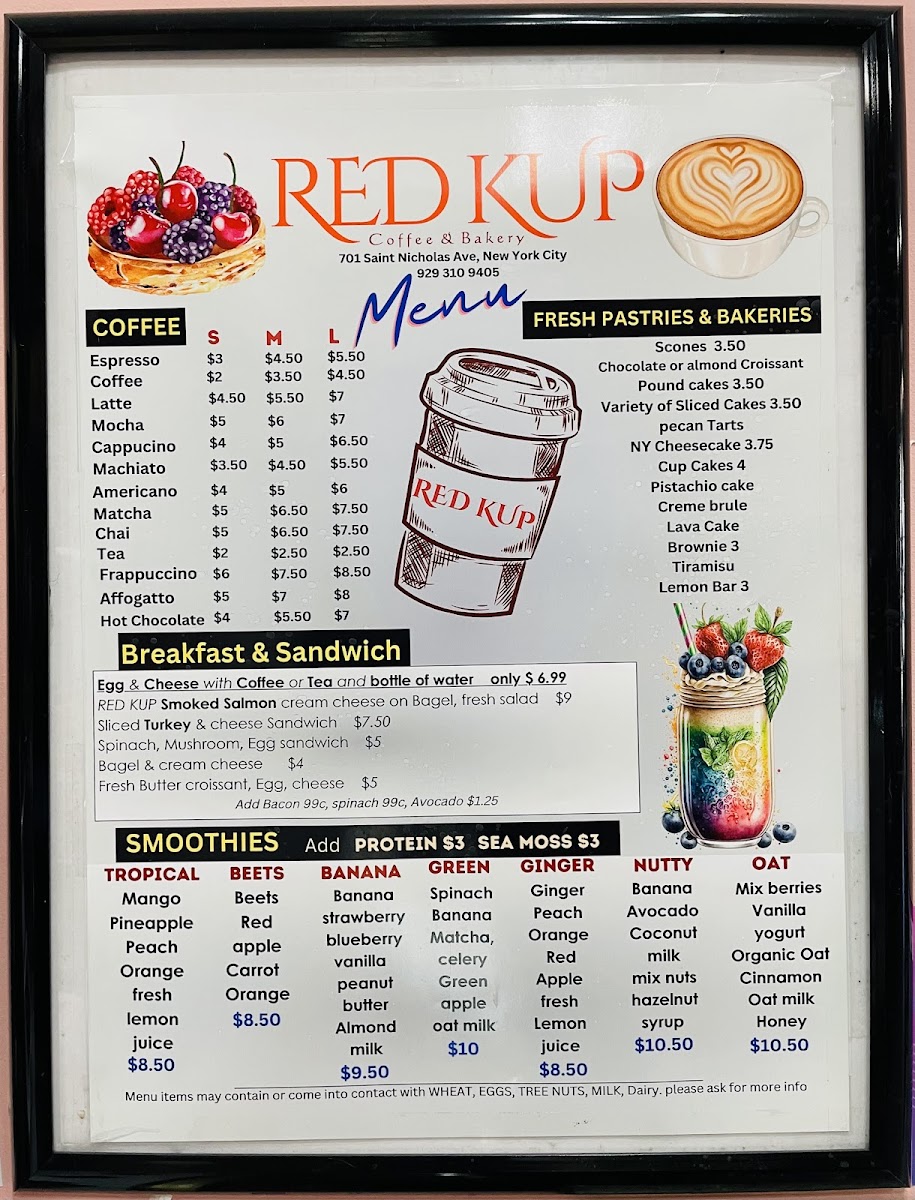 RED KUP
Coffee & Bakery
701 Saint Nicholas Ave, New York City
929 310 9405
Menu
COFFEE S M L
Espresso $3 $4.50 $5.50
Coffee $2 $3.50 $4.50
Latte $4.50 $5.50 $7
Mocha $5 $6 $7
Cappucino $4 $5 $6.50
Machiato $3.50 $4.50 $5.50
Americano $4 $5 $6
Matcha $5 $6.50 $7.50
Chai $5 $6.50 $7.50
Tea $2 $2.50 $2.50
Frappuccino $6 $7.50 $8.50
Affogatto $5 $7 $8
Hot Chocolate $4 $5.50 $7
RED KUP
FRESH PASTRIES & BAKERIES
Scones 3.50
Chocolate or almond Croissant
Pound cakes 3.50
Variety of Sliced Cakes 3.50
pecan Tarts
NY Cheesecake 3.75
Cup Cakes 4
Pistachio cake
Creme brule
Lava Cake
Brownie 3
Tiramisu
Lemon Bar 3
Breakfast & Sandwich
Egg & Cheese with Coffee or Tea and bottle of water only $ 6.99
RED KUP Smoked Salmon cream cheese on Bagel, fresh salad $9
Sliced Turkey & cheese Sandwich $7.50
Spinach, Mushroom, Egg sandwich $5
Bagel & cream cheese $4
Fresh Butter croissant, Egg, cheese $5
Add Bacon 99c, spinach 99c, Avocado $1.25
SMOOTHIES Add PROTEIN $3 SEA MOSS $3
TROPICAL
Mango
Pineapple
Peach
Orange
fresh
lemon
juice
$8.50
BEETS
Beets
Red
apple
Carrot
Orange
$8.50
BANANA
Banana
strawberry
blueberry
vanilla
peanut
butter
Almond
milk
$9.50
GREEN
Spinach
Banana
Matcha,
celery
Green
apple
oat milk
$10
GINGER
Ginger
Peach
Orange
Red
Apple
fresh
Lemon
juice
$8.50
NUTTY
Banana
Avocado
Coconut
milk
mix nuts
hazelnut
syrup
$10.50
OAT
Mix berries
Vanilla
yogurt
Organic Oat
Cinnamon
Oat milk
Honey
$10.50
Menu items may contain or come into contact with WHEAT, EGGS, TREE NUTS, MILK, Dairy. please ask for more info